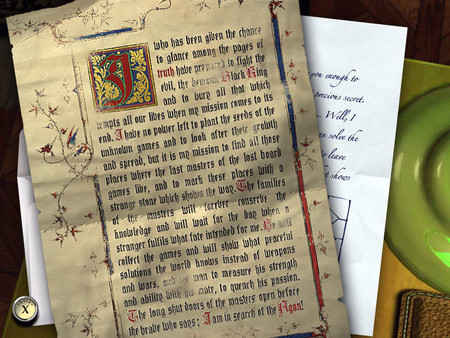 I who has been given the chance
to glance among the pages of
truth have prepared to fight the
evil, the demonic Black King
and to bury all that which
tempts all our lives when my mission comes to its
end. I have no power left to plant the seeds of the
unknown games and to look after their growth
and spread, but it is my mission to find all those
places where the last masters of the lost board
games live, and to mark these places with a
strange stone which shows the way. The families
of the masters will forever conserve the
knowledge and will wait for the day when a
stranger fulfils what fate intended for me. He will
collect the games and will show what peaceful
solutions the world knows instead of weapons
and wars, and man to measure his strength
and ability with his mate, to quench his passion.
The long shut doors of the masters open before
the brave who says: I am in search of the Agon!
you enough to
precious secret.
... Well, I
can solve the
to leave
t shows
X